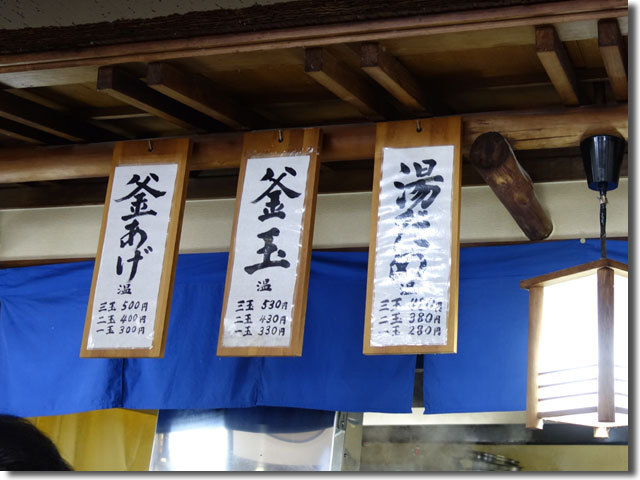 釜あげ
温
三玉 500円
二玉 400円
一玉 300円
釜玉
温
三玉 530円
二玉 430円
一玉 330円
湯だめ
温
三玉 480円
二玉 380円
一玉 280円